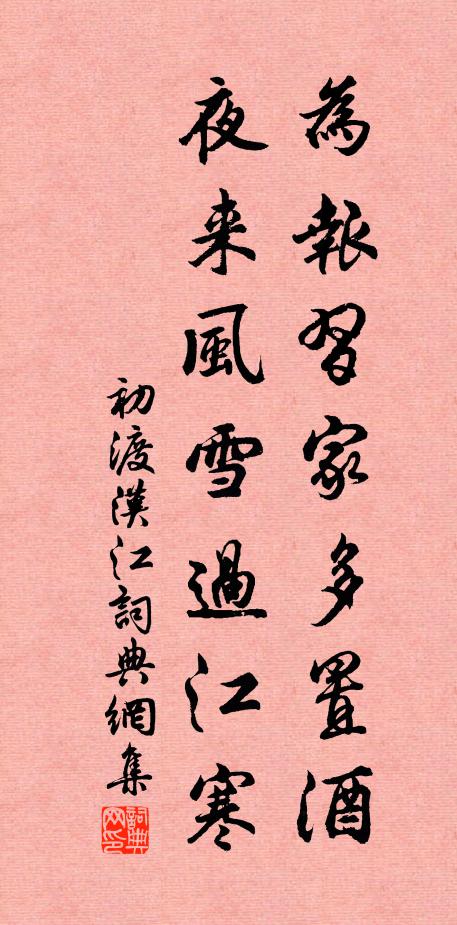 為報習家多置酒
夜来風雪過江寒
初渡漢江詞典網集
詞典
网印